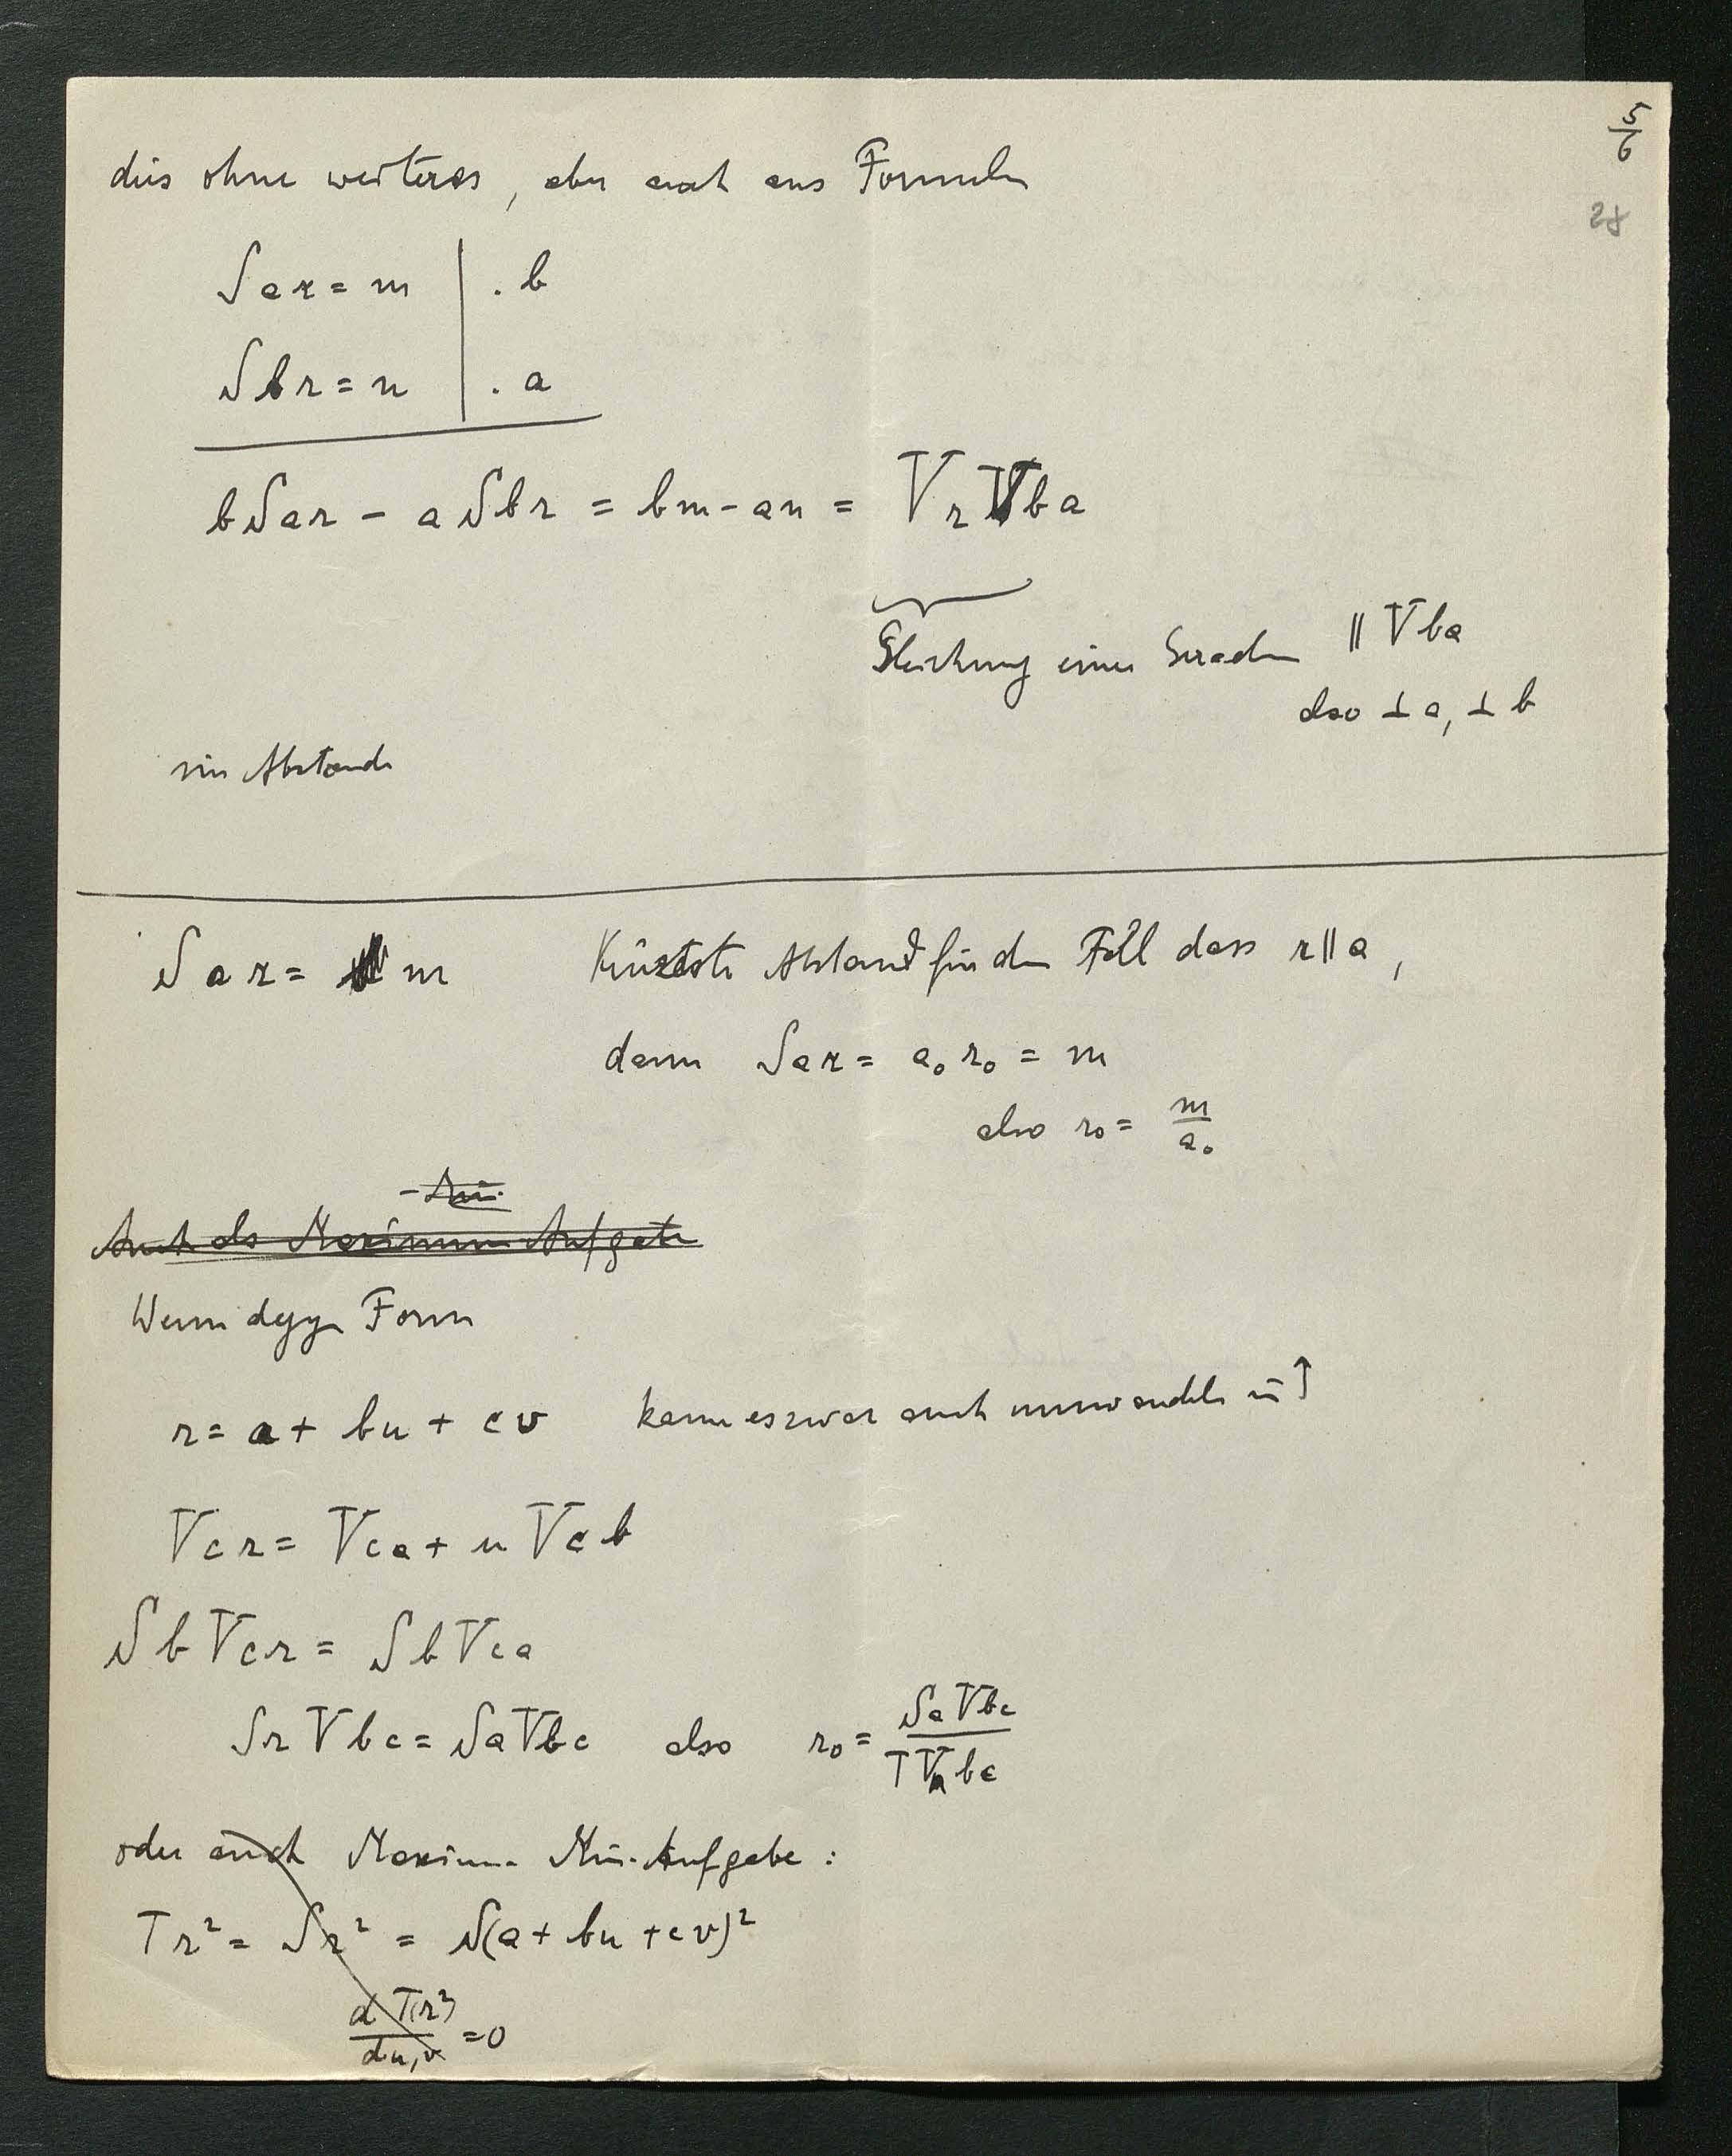 5/6
28
dies ohne weiteres, aber auch aus Formeln
Sar = m | . b
Sbr = n | . a
bSar - aSbr = bm - an = VrVba
Gleichung einer Geraden ∥ Vba
also ⊥ a, ⊥ b
im Abstande
Sar = m Kürzeste Abstand für den Fall dass r ∥ a,
dann Sar = a₀r₀ = m
also r₀ = m/a₀
- Min.
Auch als Maximum Aufgabe
Wenn dagegen Form
r = a + bu + cv kann es zwar auch umwandeln in ↑
Vcr = Vca + uVcb
SbVcr = SbVca
SrVbc = SaVbc also r₀ = SaVbc/TVbc
oder auch Maximum Min. Aufgabe:
Tr² = Sr² = S(a + bu + cv)²
dT(r²)/du,v = 0